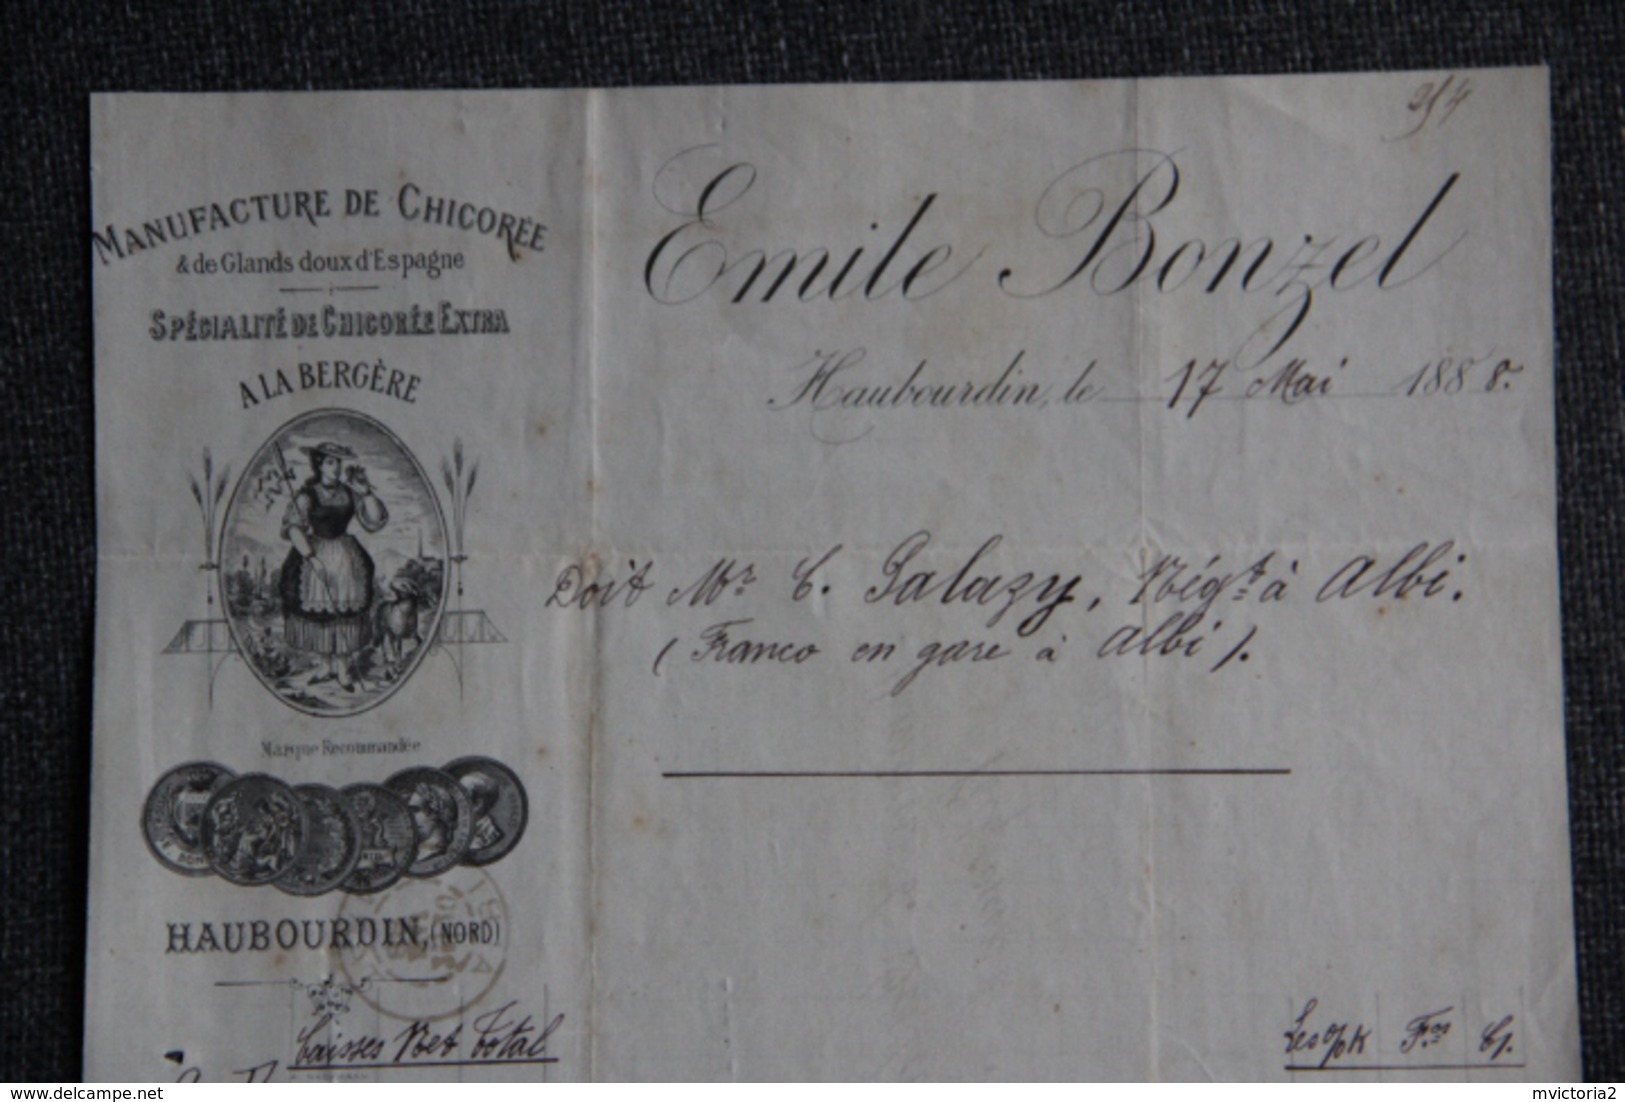 MANUFACTURE DE CHICORÉE
& de Glands doux d'Espagne
SPÉCIALITÉ DE CHICORÉE EXTRA
A LA BERGÈRE
Marque Recommandée
HAUBOURDIN, (NORD)
Emile Bonzel
Haubourdin, le 17 Mai 1888.
Doit Mr. C. Palazy, Négt. à Albi.
(Franco en gare à Albi).
Caisses Net Total
Les % K Frs Cs.
delcampe.net
mvictoria2